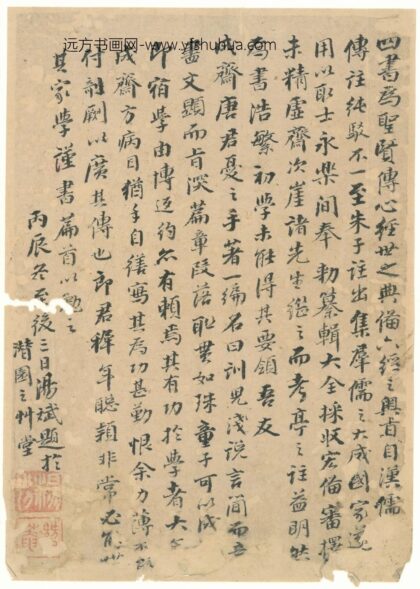 远方书画网-www.yfshuhua.com
四書為聖賢傳心經世之典備六經之奧旨自漢儒
傳註純駁不一至朱子註出集羣儒之大成國家遂
用以取士永樂間奉勅纂輯大全採收宏備審擇
未精虛齋次崖諸先生繼之而考亭之註益明然
為書浩繁初學未能得其要領吾友
成齋唐君憂之手著一編名曰訓兒淺說言簡而
盡文顯而旨深篇章段落聯貫如珠童子可以成
即宿學由博返約亦有賴焉其有功於學者大
成齋方病目猶手自繕寫其為功甚勤恨余力薄不能
付剞劂以廣其傳也郎君稺年聰穎非常必能世
其家學謹書篇首以勉之
丙辰冬至後三日湯斌題於
潛園之艸堂